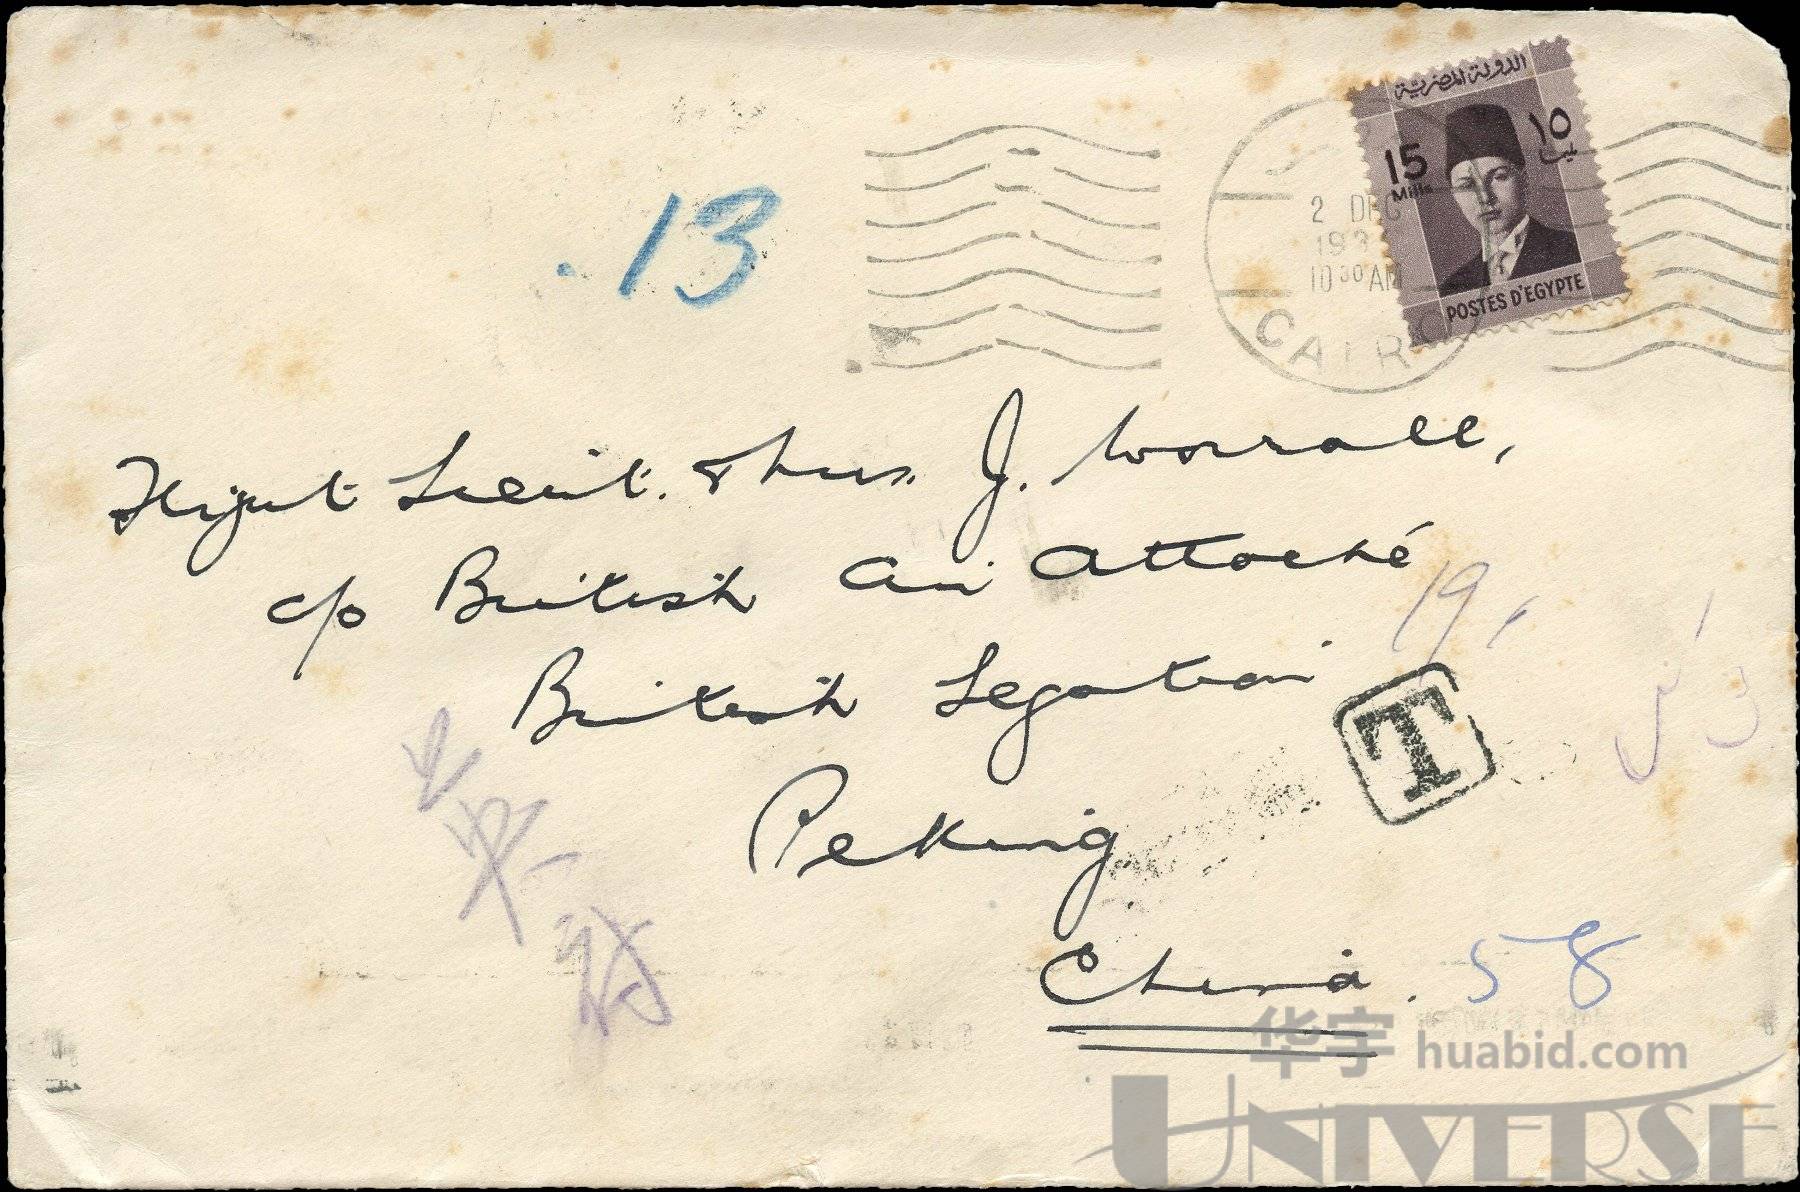 الدولة المصرية
15 ١٥
Mills مليم
POSTES D'EGYPTE
2 DEC
193
10 30 AM
CAIRO
13
Flight Lieut. Thos. J. Worrall,
c/o British Air Attaché
British Legation
19
T
Peking
China. 58
华宇 huabid.com
UNIVERSE